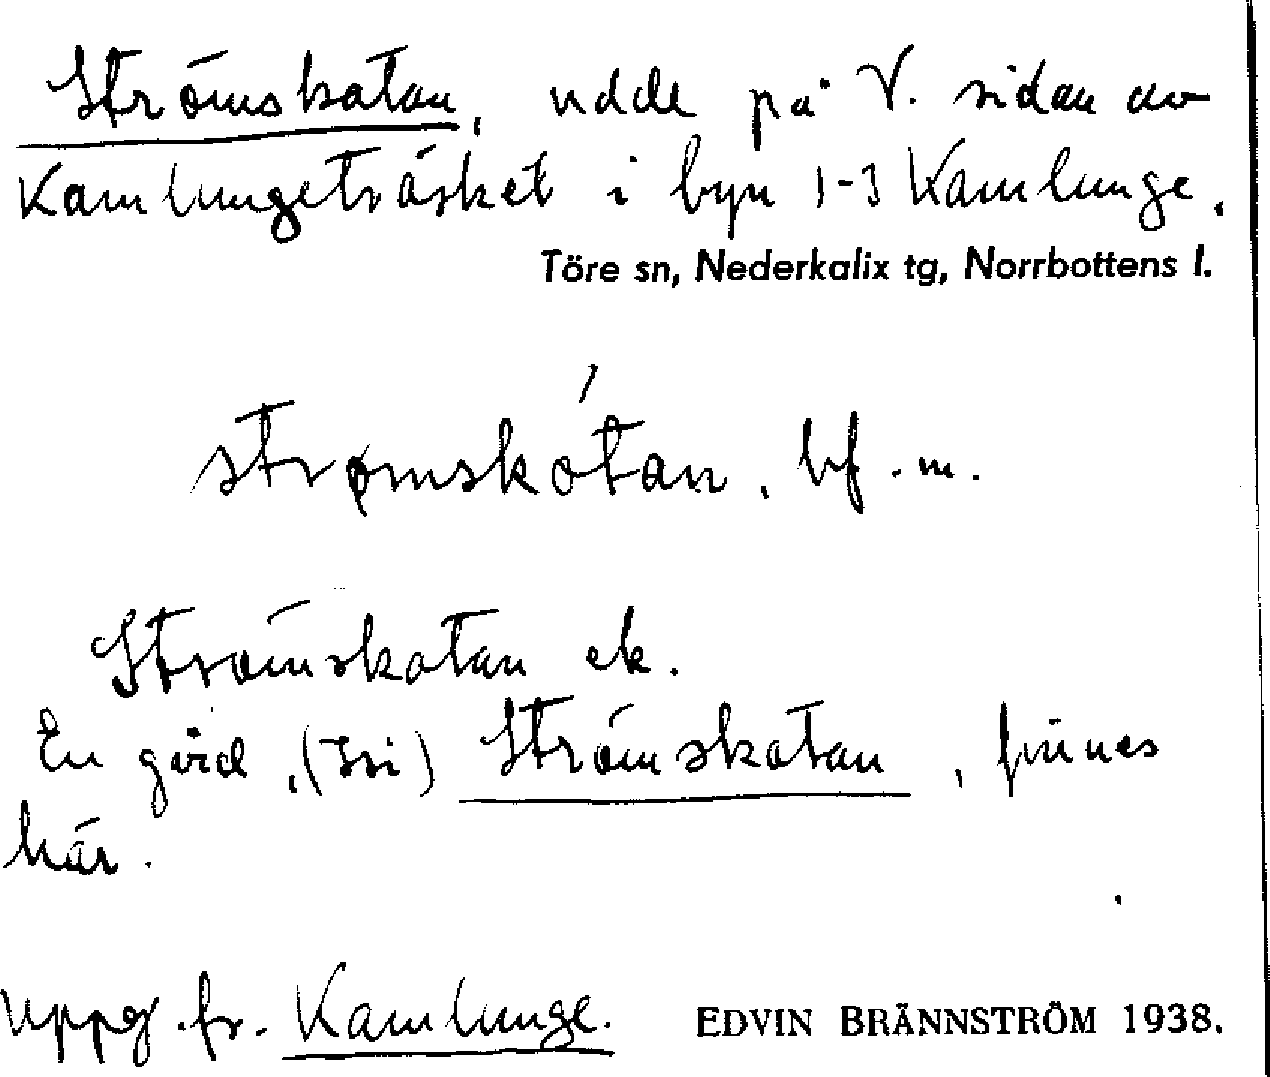 Strömskatan, udde på V. sidan av
Kamlungeträsket i byn 1-3 Kamlunge.
Töre sn, Nederkalix tg, Norrbottens l.
strømskátan, bf. m.
Strömskatan ek.
En gård, Strömskatan, finnes
här.
Uppg. fr. Kamlunge.
EDVIN BRÄNNSTRÖM 1938.